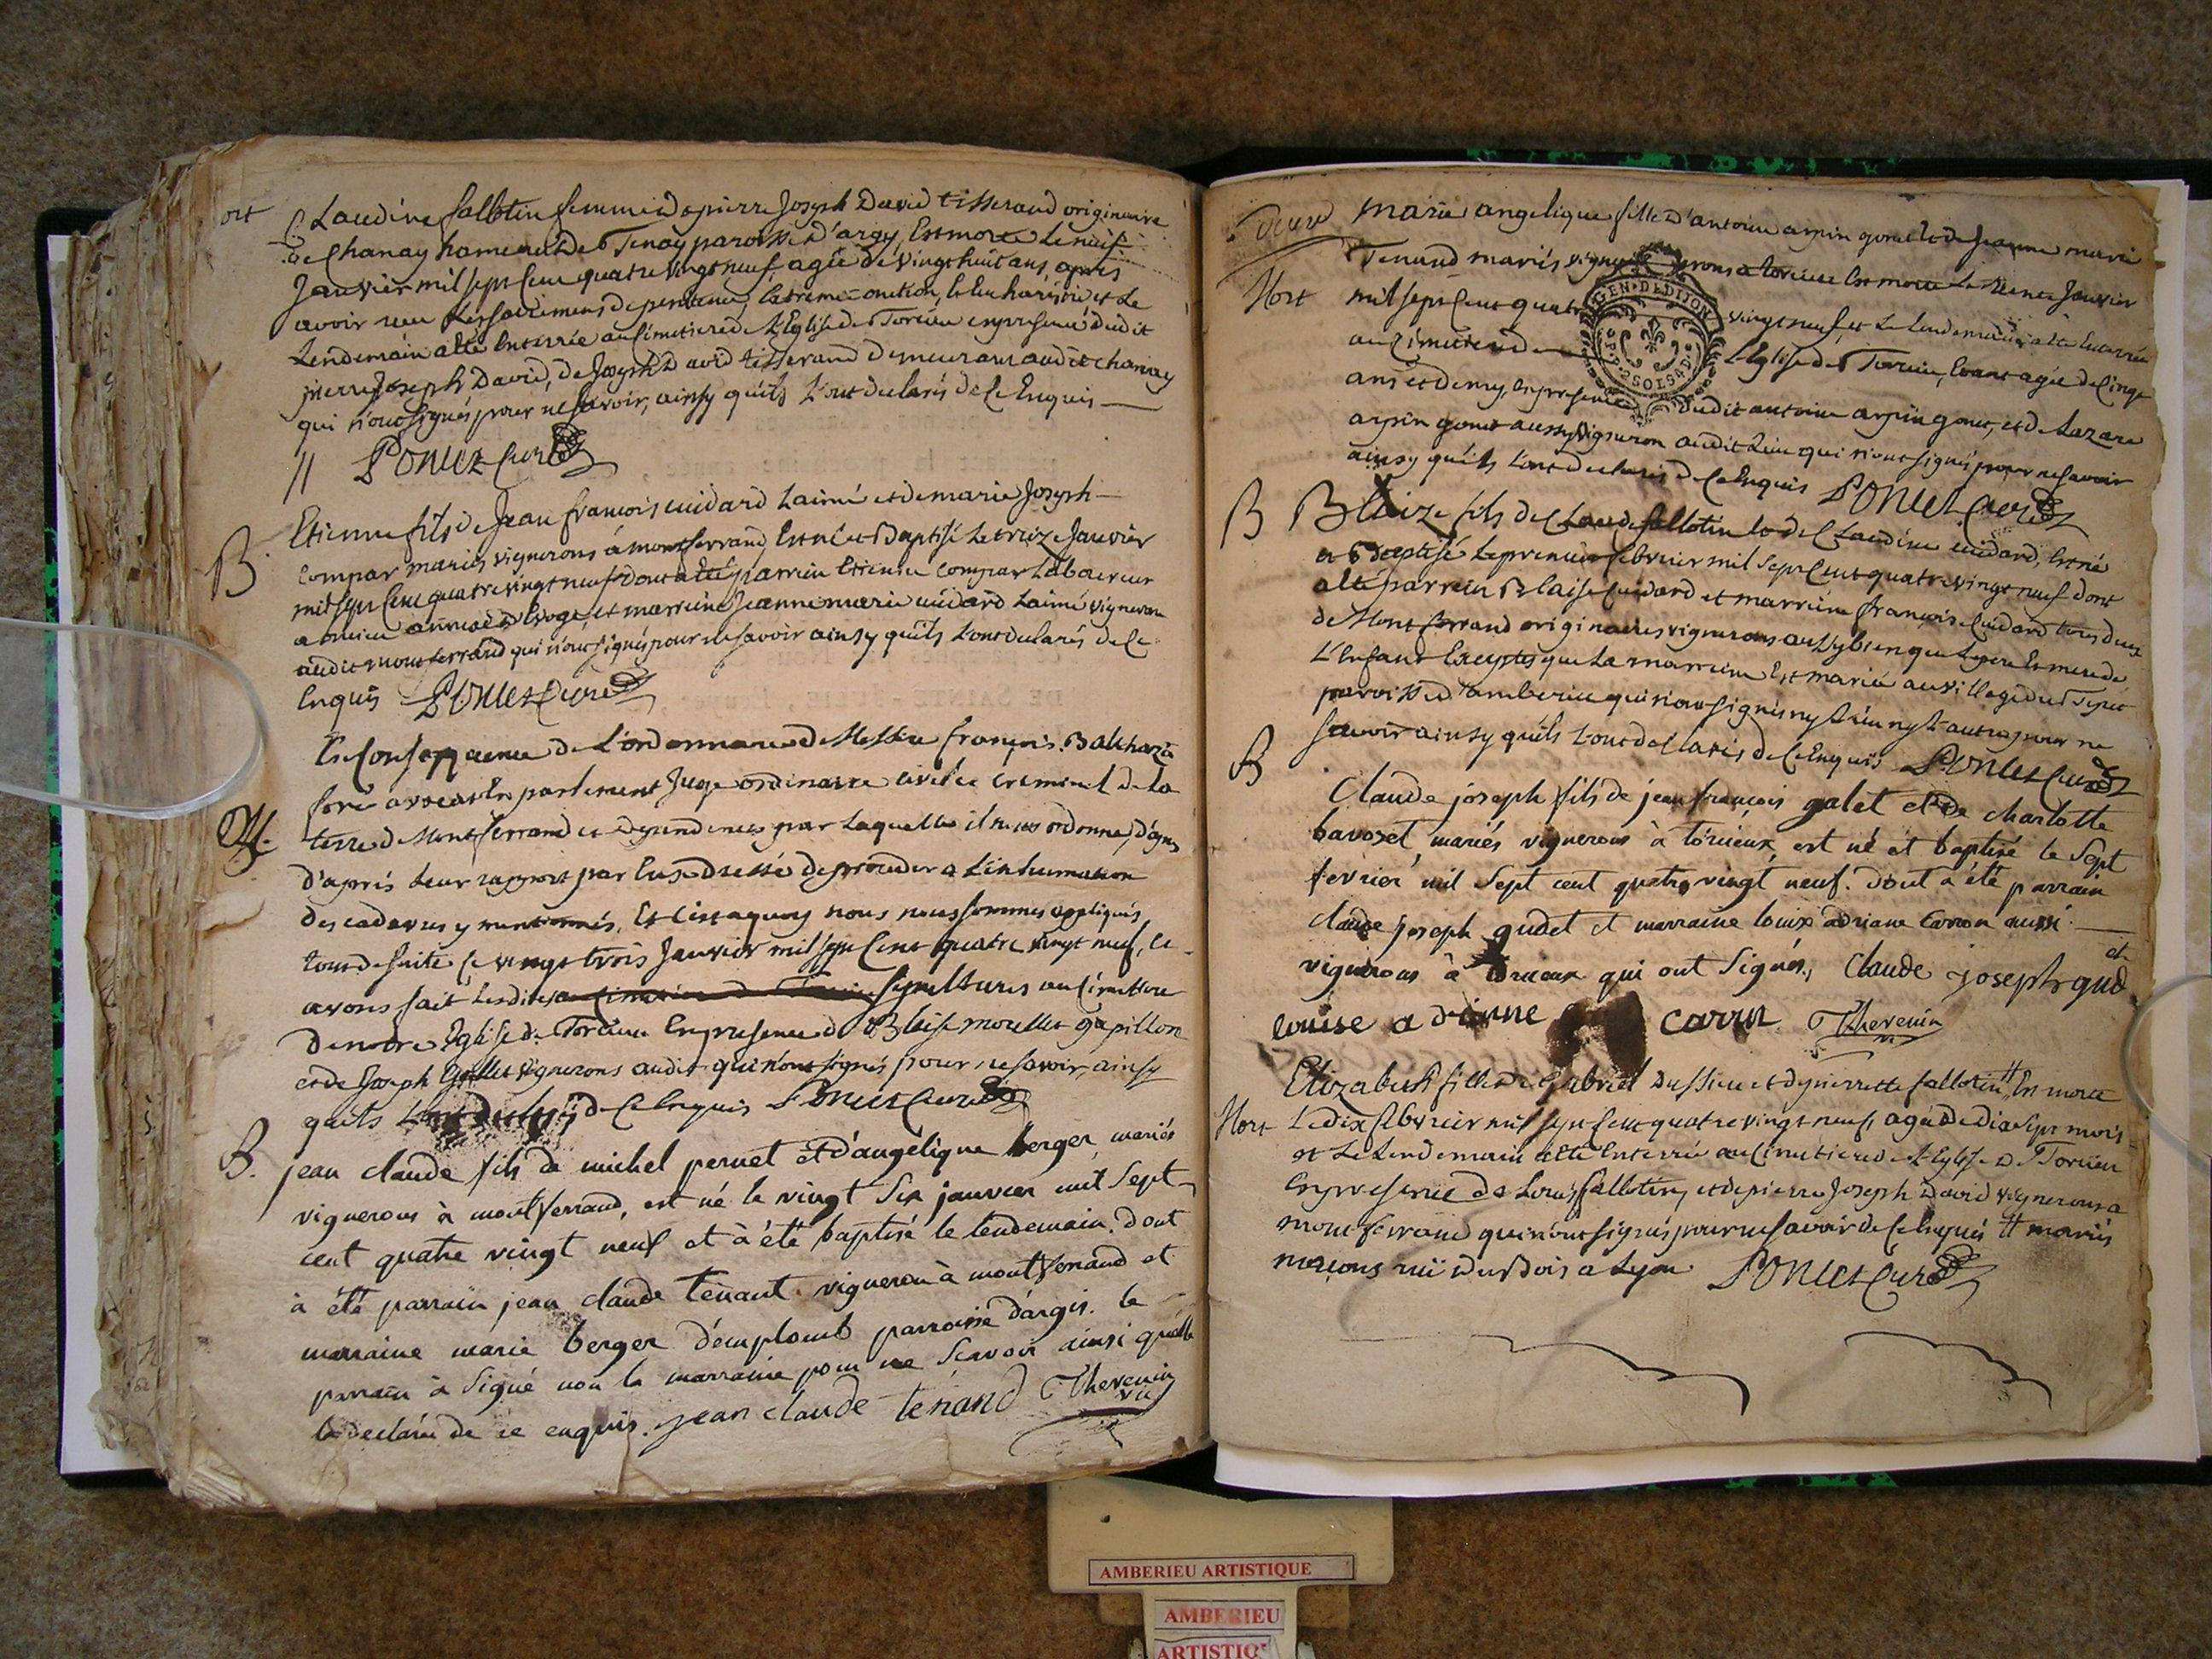 ort
Claudine fallotin femme de pierre Joseph David tisserand originaire
de Chanay hameau de Tenay paroisse d'argy, Est morte le neuf
Janvier mil sept Cent quatre vingt neuf agée de vingt huit ans, apres
avoir reçu les sacremens de penitence, l'extreme onction, et le
Lendemain a été Enterrée au Cimetiere de L'Eglise de Torcieu en presence dudit
pierre Joseph David, de Joseph David tisserand demeurant audit chanay
qui n'ont signés pour ne savoir, ainsy qu'ils L'ont declarés de Ce Enquis
// Poncet Curé
B.
Etienne fils de Jean françois cuidard L'aîné et de marie Joseph
compar mariés vignerons à montferrand, Est né et Baptisé Le treize Janvier
mil sept Cent quatre vingt neuf dont a été parrein Etienne compar Laboureur
et marreine Jeanne marie cuidard L'aîné vigneron
audit montferrand qui n'ont signés pour ne savoir ainsy qu'ils L'ont declarés de Ce
Enquis Poncet Curé
En Consequence de L'ordonnance de Messire françois Balthazar
avocat En parlement Juge ordinaire civil et criminel de la
terre de Montferrand et dependences par Laquelle il nous ordonne,
d'apris Leur rapport par Eux dressé de proceder a L'inhumation
des cadavres y mentionnés, Et nous nous sommes appliqués
tout de suite Ce vingt trois Janvier mil sept Cent quatre vingt neuf,
avons fait Lesdites sepultures au Cimettiere
de notre Eglise de Torcieu En presence de Blaise moullet gapillon
et de Joseph vignerons audit qui n'ont signés pour ne savoir ainsy
qu'ils L'ont de Ce Enquis Poncet Curé
B.
jean claude fils de michel pernet et d'angélique berger, mariés
vignerons à montferrand, est né le vingt six janvier mil sept
cent quatre vingt neuf et à été baptisé le lendemain. Dont
à été parrain jean claude tenant vigneron à montferrand et
marraine marie berger paroisse d'argis. le
parrain à signé non la marraine pour ne scavoir ainsi qu'elle
l'a declaré de ce enquis. jean claude tenand Thevenin
vic
Mort
marie angelique fille d'antoine arpin gonet et de Jeanne marie
Tenand mariés vignerons a torcieu Est morte Le Janvier
mil sept Cent quatre vingt neuf, et Le Lendemain a été Enterrée
au Cimetiere de L'Eglise de Torcieu, Etant agée de Cinq
ans et demy, En presence dudit antoine arpin gonet, et de Lazare
arpin gonet aussy vigneron audit Lieu qui n'ont signés pour ne savoir
ainsy qu'ils L'ont declarés de Ce Enquis Poncet Curé
GEN. D. DIJON
2 SOLS 4 D.
B
Blaize fils de Claude fallotin et de Claudine cuidard, Est né
et Baptisé Le premier febvrier mil sept Cent quatre vingt neuf dont
a été parrein Blaise Cuidard et marreine françoise Cuidard tous deux
de Montferrand originaires vignerons aussy bien que Le pere Et mere de
L'Enfant Exceptés que La marreine Est mariée au village du Tiret
paroisse d'amberieu qui n'ont signés ny L'un ny L'autre pour ne
savoir ainsy qu'ils L'ont declarés de Ce Enquis Poncet Curé
B
Claude joseph fils de jean françois galet et de charlotte
bavozet, mariés vignerons à torcieux, est né et baptisé le sept
fevrier mil sept cent quatre vingt neuf. dont à été parrain
claude joseph gudet et marraine louise adriane carron aussi
vignerons à torcieux qui ont signés, Claude joseph gudet
louise a drinne carrn Thevenin
Mort
Elizabeth fille de Gabriel Dussieu et de pierrette fallotin # Est morte
Le dix febvrier mil sept Cent quatre vingt neuf, agée de dix sept mois
et Le Lendemain a été Enterrée au Cimetiere de L'Eglise de Torcieu
En presence de Louis fallotin, et de pierre Joseph David vignerons a
montferrand qui n'ont signés pour ne savoir de Ce Enquis # mariés
maçons rüe du Bois a Lyon Poncet Curé
AMBERIEU ARTISTIQUE
AMBERIEU
ARTISTIQ